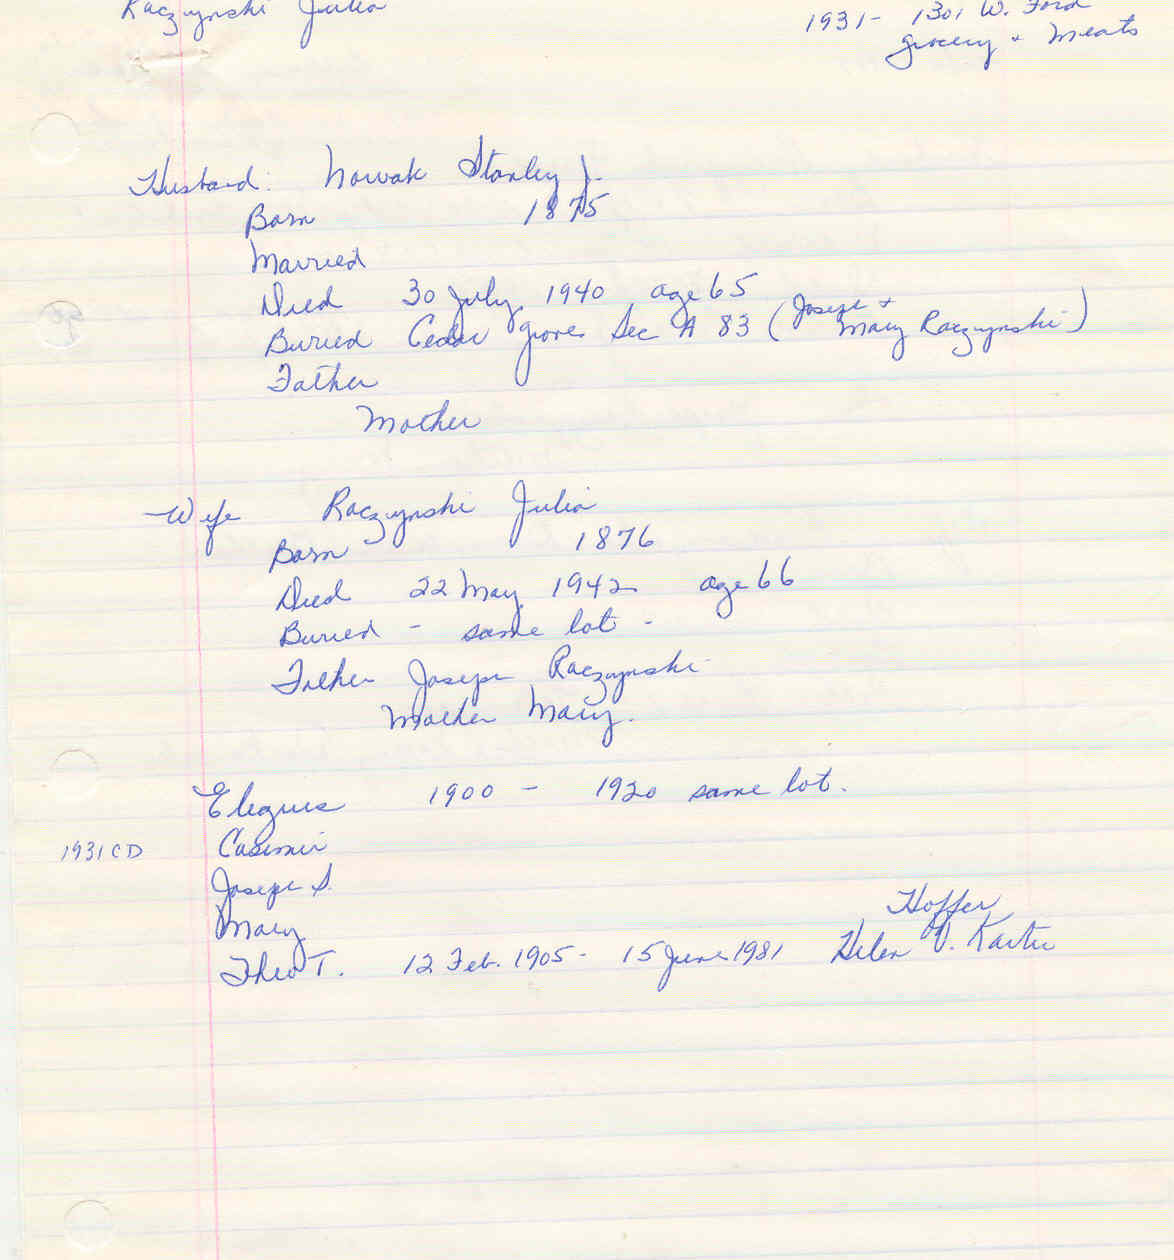 Raczynski Julia
1931 - 1301 W. Ford
grocery + meats
Husband: Nowak Stanley J.
Born 1875
Married
Died 30 July 1940 age 65
Buried Cedar Grove Sec A 83 (Joseph + Mary Raczynski)
Father
Mother
Wife Raczynski Julia
Born 1876
Died 22 May 1942 age 66
Buried - same lot -
Father Joseph Raczynski
Mother Mary.
1900 - 1920 same lot.
1931 CD Casimir
Joseph S.
Mary
Hoffer
Theo T. 12 Feb. 1905 - 15 June 1981 Helen V.